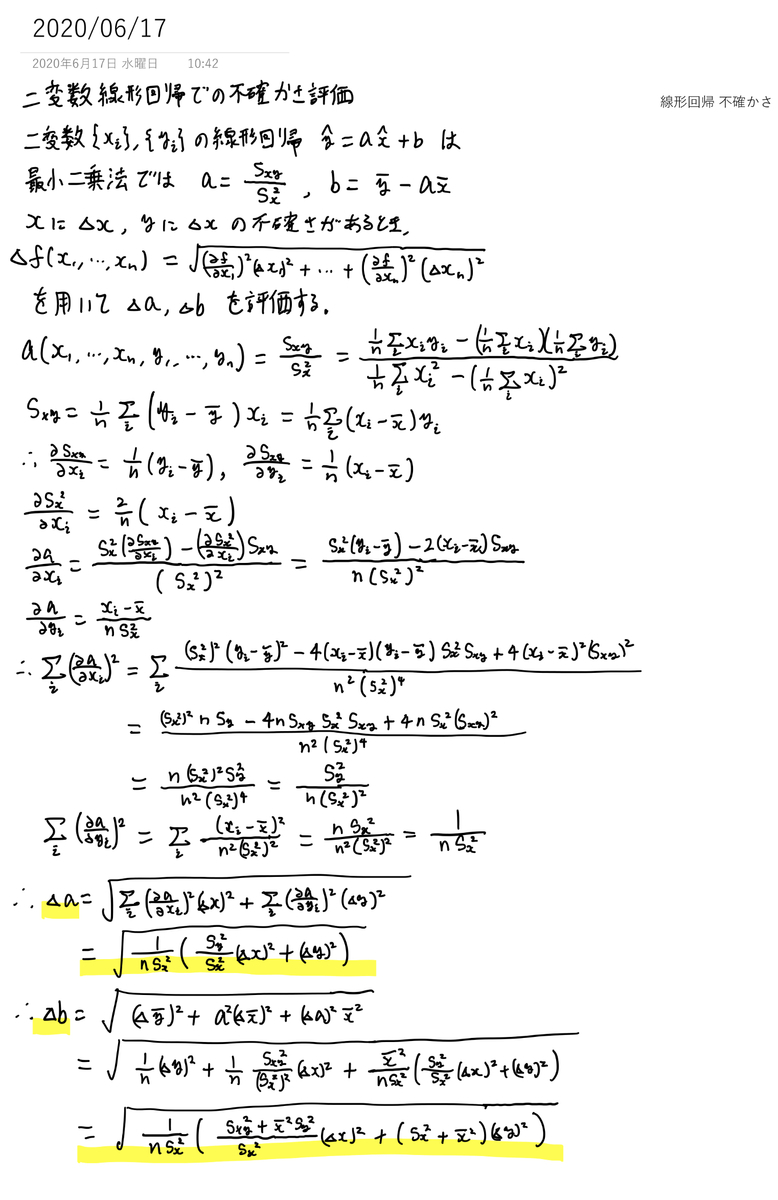 2020/06/17
2020年6月17日 水曜日 10:42
線形回帰 不確かさ
二変数線形回帰での不確かさ評価
二変数{x_i},{y_i}の線形回帰 ŷ=ax̂+b は
最小二乗法では a = S_xy/S_x², b = ȳ − ax̄
xにΔx, yにΔxの不確さがあるとき,
Δf(x_1,…,x_n) = √((∂f/∂x_1)²(Δx_1)² + … + (∂f/∂x_n)²(Δx_n)²)
を用いて Δa, Δb を評価する.
a(x_1,…,x_n, y_1,…,y_n) = S_xy/S_x² = (1/n Σ_i x_i y_i − (1/n Σ_i x_i)(1/n Σ_i y_i))/(1/n Σ_i x_i² − (1/n Σ_i x_i)²)
S_xy = 1/n Σ_i (y_i − ȳ)x_i = 1/n Σ_i (x_i − x̄)y_i
∴ ∂S_xy/∂x_i = 1/n (y_i − ȳ), ∂S_xy/∂y_i = 1/n (x_i − x̄)
∂S_x²/∂x_i = 2/n (x_i − x̄)
∂a/∂x_i = (S_x²(∂S_xy/∂x_i) − (∂S_x²/∂x_i)S_xy)/(S_x²)² = (S_x²(y_i − ȳ) − 2(x_i − x̄)S_xy)/(n(S_x²)²)
∂a/∂y_i = (x_i − x̄)/(nS_x²)
∴ Σ_i (∂a/∂x_i)² = Σ_i ((S_x²)²(y_i − ȳ)² − 4(x_i − x̄)(y_i − ȳ)S_x² S_xy + 4(x_i − x̄)²(S_xy)²)/(n²(S_x²)⁴)
= ((S_x²)² n S_y − 4n S_xy S_x² S_xy + 4n S_x²(S_xy)²)/(n²(S_x²)⁴)
= (n(S_x²)² S_y²)/(n²(S_x²)⁴) = S_y²/(n(S_x²)²)
Σ_i (∂a/∂y_i)² = Σ_i (x_i − x̄)²/(n²(S_x²)²) = nS_x²/(n²(S_x²)²) = 1/(nS_x²)
∴ Δa = √(Σ_i (∂a/∂x_i)²(Δx)² + Σ_i (∂a/∂y_i)²(Δy)²)
= √(1/(nS_x²) (S_y²/S_x² (Δx)² + (Δy)²))
∴ Δb = √((Δȳ)² + a²(Δx̄)² + (Δa)² x̄²)
= √(1/n (Δy)² + 1/n S_xy²/(S_x²)² (Δx)² + x̄²/(nS_x²) (S_y²/S_x² (Δx)² + (Δy)²))
= √(1/(nS_x²) ((S_xy² + x̄² S_y²)/S_x² (Δx)² + (S_x² + x̄²)(Δy)²))